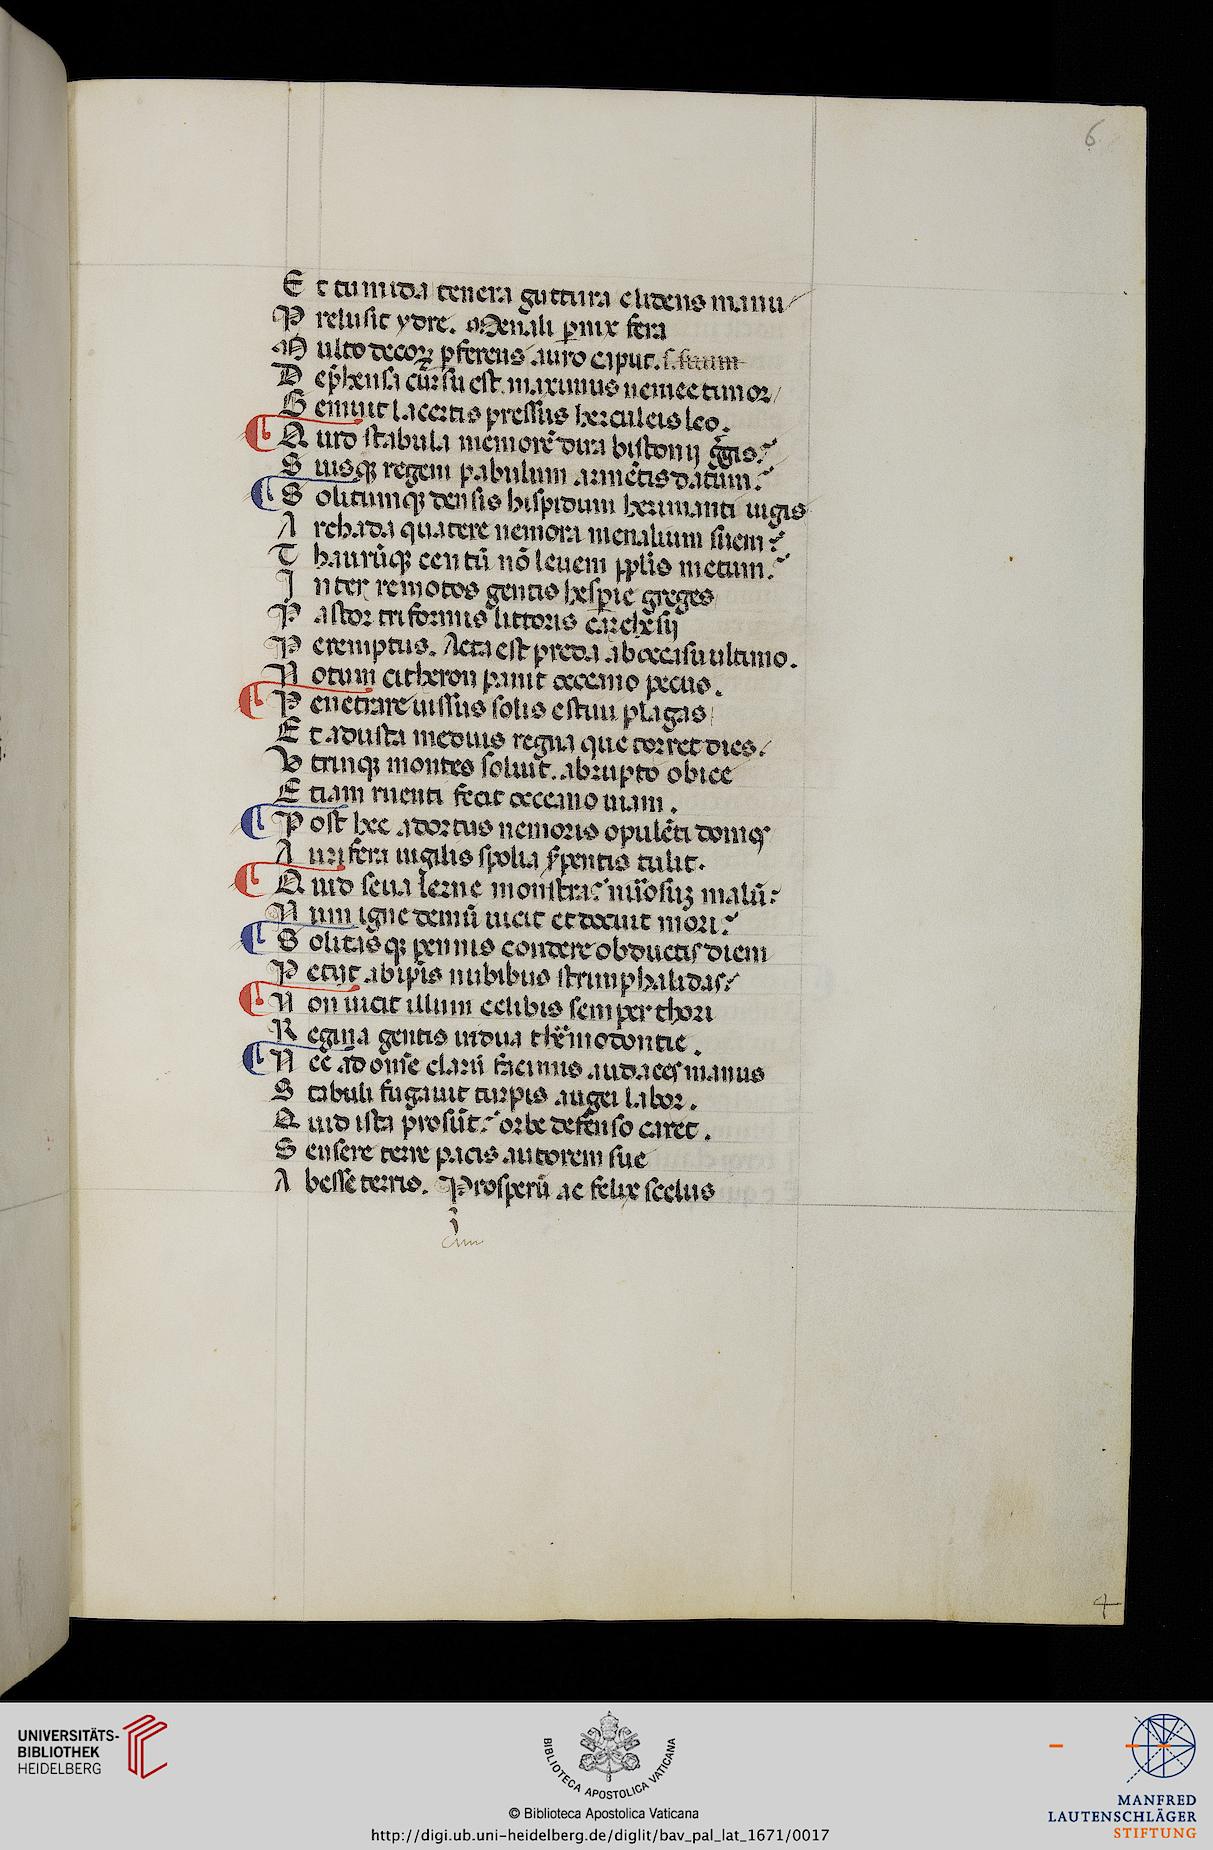 6
E t tumida tenera guttura elidens manu
P relusit ydre. Menali p̲nix fera
M ulto decoꝝ p̲ferens auro caput. s. suum
D ep̄hensa cūrsu est. maximus nemee timor
G emuit lacertis pressus herculeis leo.
Q uid stabula memorē dira bistonij gͣgis?
S uisqꝫ regem pabulum armētis datum?
S olitumqꝫ densis hispidum herimanti iugis
A rchada quatere nemora menalium suem?
T haurūqꝫ centū nō leuem pp̲lis metum?
I nter remotos gentis hesp̲ie greges
P astor triformis littoris carthesij
P eremptus. Acta est preda ab occasu ultimo.
N otum citheron pauit occeano pecus.
P enetrare iussus solis estiui plagas
E t adusta medius regna que torret dies.
V trinqꝫ montes soluit. abrupto obice
E tiam ruenti fecit occeano uiam.
P ost hec adortus nemoris opulēti domꝰ
A urifera uigilis spolia s̄pentis tulit.
Q uid seua lerne monstra? nūosuꝫ malū?
N um igne demū uicit et docuit mori?
S olitasqꝫ pennis condere obductis diem
P etijt ab ip̄is nubibus strimphalidas?
N on uicit illum celibis semper thori
R egina gentis uidua thermodontie.
N ec ad om̄e clarū facinus audaces manus
S tabuli fugauit turpis augei labor.
Q uid ista prosūt? orbe defenso caret.
S ensere terre pacis autorem sue
A besse terris. Prosperū ac felix scelus
4
UNIVERSITÄTS-
BIBLIOTHEK
HEIDELBERG
BIBLIOTECA APOSTOLICA VATICANA
© Biblioteca Apostolica Vaticana
http://digi.ub.uni-heidelberg.de/diglit/bav_pal_lat_1671/0017
MANFRED
LAUTENSCHLÄGER
STIFTUNG